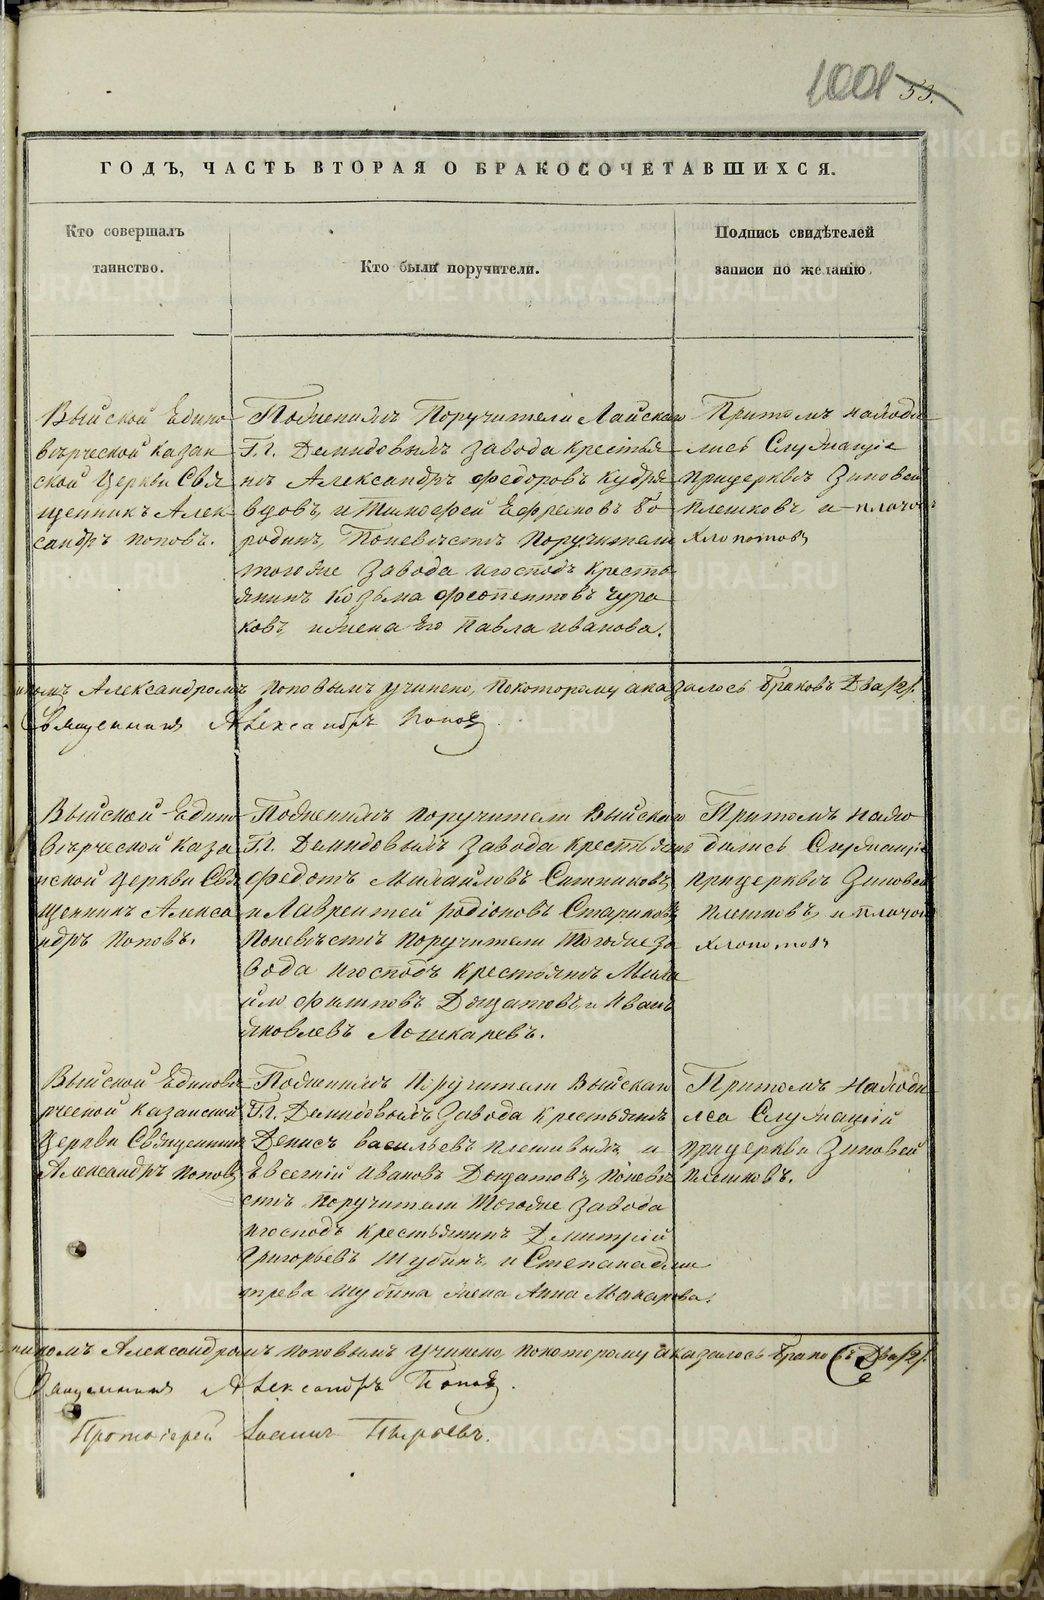 1001 53.
ГОДЪ, ЧАСТЬ ВТОРАЯ О БРАКОСОЧЕТАВШИХСЯ.
Кто совершалъ
таинство.
Кто были поручители.
Подпись свидѣтелей
записи по желанію.
Выйской Едино
вѣрческой Казан
ской Церкви Свя
щенникъ Алек
сандръ Поповъ.
Пожениxѣ Поручители Лайскаго
Г.г. Демидовыхъ завода крестья
нѣ Александръ Федоровъ Кудря
вцовъ, и Тимофей Ефремовъ Бо
родинъ, Поневѣстѣ Поручители
тогоже Завода игосподъ Кресть
янинъ Козьма Феопентовъ Чура
ковъ ижена Его Павла Иванова.
Притомъ находи
лись Служащіе
прицерквѣ Зиновей
Плешковъ и
Хлопотовъ
Александромъ Поповымъ учинено, Покоторому аказалось браковъ Два /2/.
Священникъ Александръ Поповъ.
Выйской Едино
вѣрческой Каза
нской Церкви Свя
щенникъ Алекса
ндръ Поповъ.
Пожениxѣ поручители Выйскаго
Г.г. Демидовыхъ завода крестьянѣ
Федотъ Михайловъ Ситниковъ,
и Лаврентей Родіоновъ Стариковъ
Поневѣстѣ поручители Тогоже За
вода игосподъ крестьянѣ Миха
йло Филиповъ и Иванъ
Яковлевъ Лошкаревъ.
Притомъ нахо
дились Служащіе
прицерквѣ Зиновей
Плешковъ, и
Хлопотовъ
Выйской Единовѣ
рческой Казанской
Церкви Священникъ
Александръ Поповъ
Пожениxѣ Поручители Выйскаго
Г.г. Демидовыхъ Завода крестьянѣ
Денисъ Васильевъ и
Евсегній Ивановъ Поневѣ
стѣ поручители Тогоже завода
игосподъ крестьянинъ Дмитрій
Григорьевъ Шубинъ, и Степана Дми
трева Шубина жена Анна Макарова.
Притомъ Находи
лса Служащій
прицеркви Зиновей
Плешковъ.
Александромъ Поповымъ учинено покоторому аказалось браковъ Два /2/.
Священникъ Александръ Поповъ.
Протоіерей Іоаннъ Пырьевъ.
METRIKI.GASO-URAL.RU